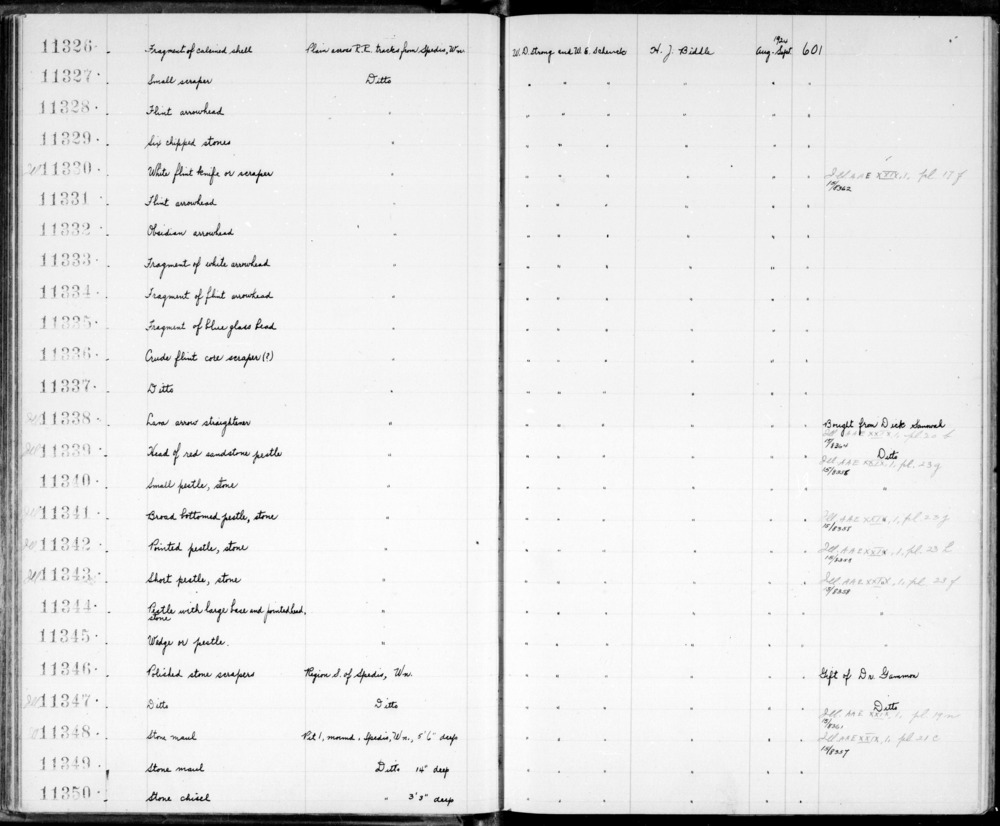 11326 Fragment of calcined shell Plain across R.R. tracks from Spedis, Wn. W. D. Strong and W. E. Schenck H. J. Biddle 1924 Aug-Sept 601
11327 Small scraper Ditto " " " " " "
11328 Flint arrowhead " " " " " " "
11329 Six chipped stones " " " " " " "
11330 White flint knife or scraper " " " " " " " Ill. AAE XXIX, 1, pl. 17 f
15/8362
11331 Flint arrowhead " " " " " " "
11332 Obsidian arrowhead " " " " " " "
11333 Fragment of white arrowhead " " " " " " "
11334 Fragment of flint arrowhead " " " " " " "
11335 Fragment of blue glass bead " " " " " " "
11336 Crude flint core scraper (?) " " " " " " "
11337 Ditto " " " " " " "
11338 Lava arrow straightener " " " " " " " Bought from Dick
Ill. AAE XXIX, 1, pl. 20 b
11339 Head of red sandstone pestle " " " " " " " Ditto
Ill. AAE XXIX, 1, pl. 23 g
15/8358
11340 Small pestle, stone " " " " " " " "
11341 Broad bottomed pestle, stone " " " " " " " Ill. AAE XXIX, 1, pl. 23
11342 Pointed pestle, stone " " " " " " " Ill. AAE XXIX, 1, pl. 23
11343 Short pestle, stone " " " " " " " Ill. AAE XXIX, 1, pl. 23 f
15/8358
11344 Pestle with large base and pointed head, " " " " " " " "
stone
11345 Wedge or pestle. " " " " " " " "
11346 Polished stone scrapers Region S. of Spedis, Wn. " " " " " " Gift of Dr. Gammon
11347 Ditto Ditto " " " " " " Ditto
Ill. AAE XXIX, 1, pl. 19
15/8361
11348 Stone maul Pit 1, mound, Spedis, Wn., 5'6" deep " " " " " " Ill. AAE XXIX, 1, pl. 21 c
15/8357
11349 Stone maul Ditto 14" deep " " " " " "
11350 Stone chisel " 3'3" deep " " " " " "